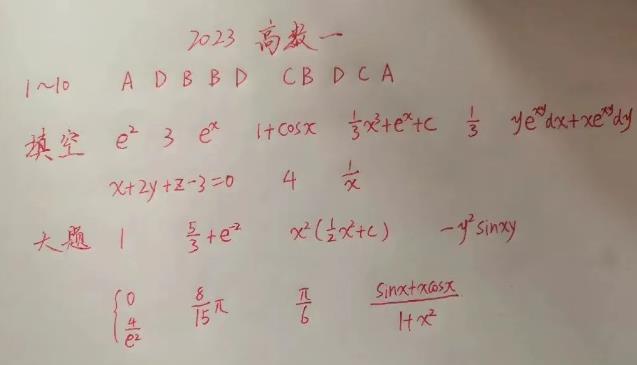 2023 高数一
1~10 A D B B D C B D C A
填空 e² 3 eˣ 1+cosx 1/3x³+eˣ+c 1/3 ye^{xy}dx+xe^{xy}dy
x+2y+z-3=0 4 1/x
大题 1 5/3+e⁻² x²(1/2x²+c) -y²sinxy
{0 4/e² 8/15π π/6 (sinx+xcosx)/(1+x²)